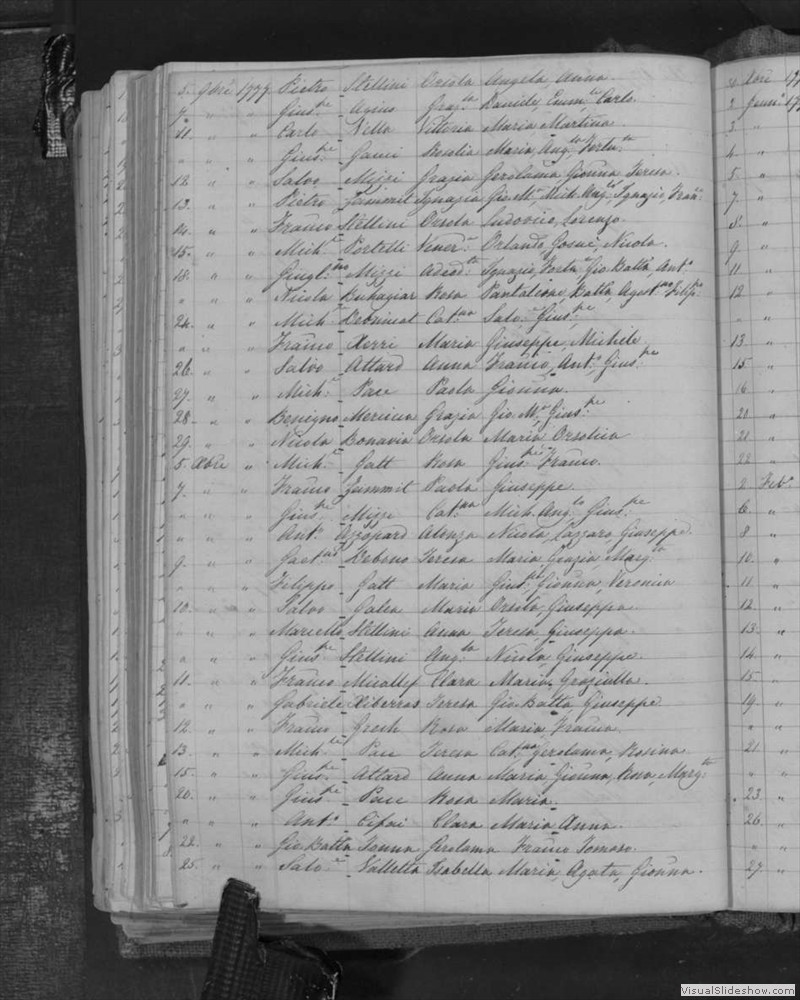 5. 9bre 1777 Pietro Stellini Orsola Angela Anna.
7. " " Gius:pe Graz:la Daniele, Eum:, Carlo.
11. " " Carlo Vella Vittoria Maria Martina.
" " " Gius:pe Gauci Rosolia Maria, Ang:la
12. " " Salvo Mizzi Grazia Gerolama, Gionna, Teresa.
13. " " Pietro Zammit Ignazia Gio: M:a Mich: Ang:lo, Ignazio, Fran:
14. " " Franco Stellini Orsola Ludovico, Lorenzo.
15. " " Mich:e Portelli Vener:a Orlando, Nicola.
18. " " Mizzi Adeod:ta Ignazio, Gio Batta, Ant:o
" " " Nicola Buhagiar Rosa Pantalione, Batta, Agost:no, Filip:o
24. " " Mich:e Debrincat Cat:na Salv:e, Gius:pe
" " " Franco Xerri Maria Giuseppe, Michele.
26. " " Salvo Attard Anna Franco, Ant:o, Gius:pe
27. " " Mich:e Pace Paola Gionna.
28. " " Benigno Grazia Gio M:a, Gius:pe
29. " " Nicola Bonavia Orsola Maria, Orsolica
5. Xbre " Mich:e Gatt Rosa Gius:pe, Franco.
7. " " Franco Zammit Paola Giuseppe.
" " " Gius:pe Mizzi Cat:na Mich: Ang:lo, Gius:pe
" " " Ant:o Azzopard Aloysa Nicola, Lazzaro, Giuseppe.
9. " " Gaet:no Debono Teresa Maria, Grazia, Marg:ta
" " " Filippo Gatt Maria Gius:pa, Gionna, Veronica
10. " " Salvo Galea Maria Orsola, Giuseppa.
" " " Marcello Stellini Anna Teresa, Giuseppa.
" " " Gius:pe Stellini Ang:la Nicola, Giuseppe.
11. " " Franco Micallef Clara Maria, Graziulla.
" " " Gabriele Xiberras Teresa Gio Batta, Giuseppe
12. " " Franco Grech Rosa Maria, Franca.
13. " " Mich:e Pace Teresa Cat:na, Gerolama, Rosina.
15. " " Gius:pe Attard Anna Maria, Gionna, Rosa, Marg:ta
20. " " Gius:pe Pace Rosa Maria.
" " " Ant:o Cifai Clara Maria Anna.
22. " " Gio Batta Gerolama Franco Tomaso.
25. " " Salv:e Valletta Isabella Maria, Agata, Gionna.
Xbre 17
2. 17
3. "
4. "
5. "
7. "
8. "
9. "
11 "
12 "
" "
13. "
15. "
16. "
20. "
21. "
22. "
2. Feb:o
6. "
8 "
10. "
11. "
12. "
13. "
14. "
15. "
19. "
" "
21. "
" "
23. "
26. "
" "
27. "
VisualSlideshow.com